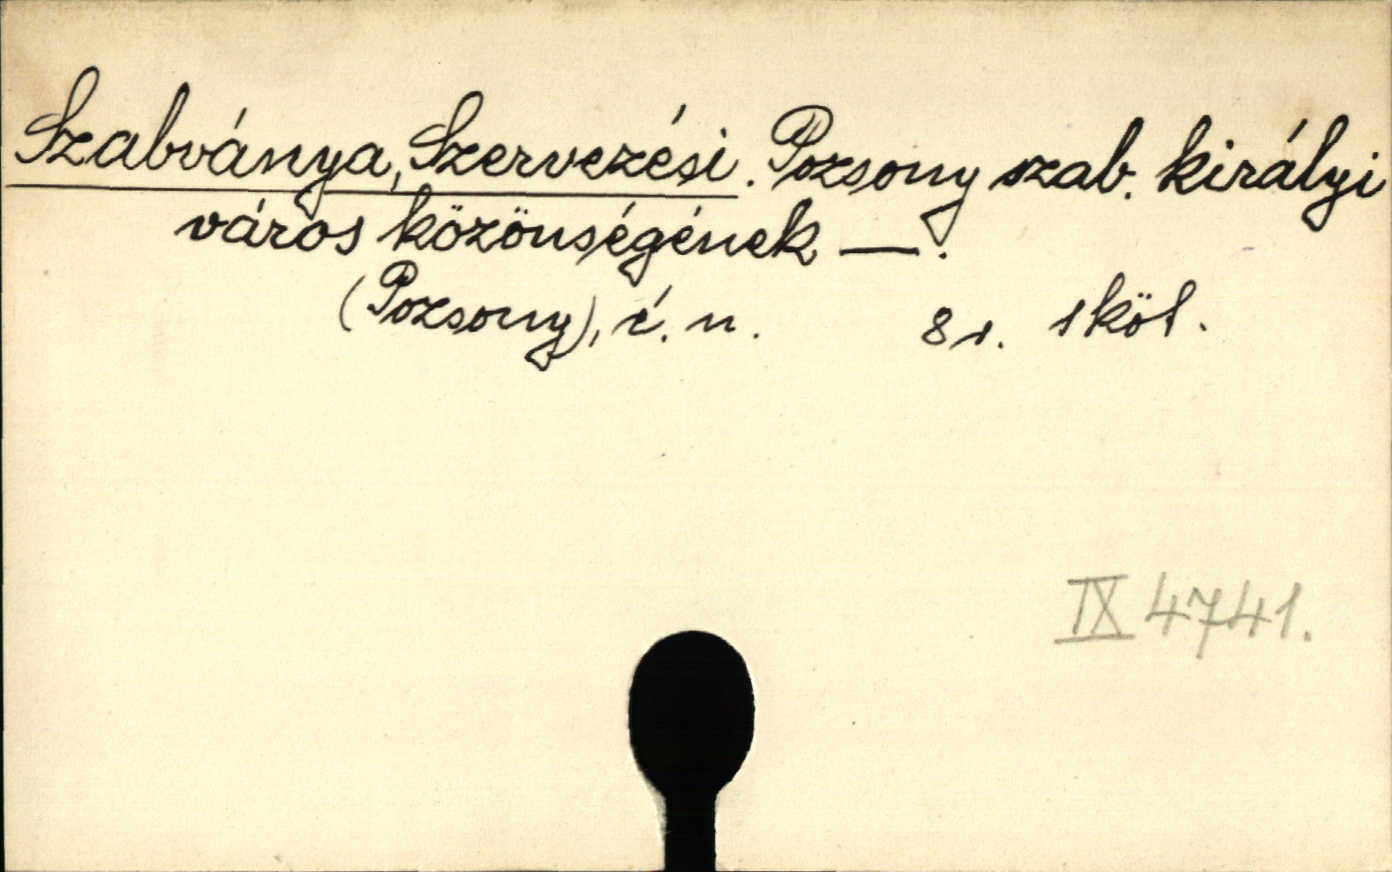 Szabványa, Szervezési. Pozsony szab. királyi
város közönségének —.
(Pozsony), é. n. 8r. 1 köt.
IX 4741.